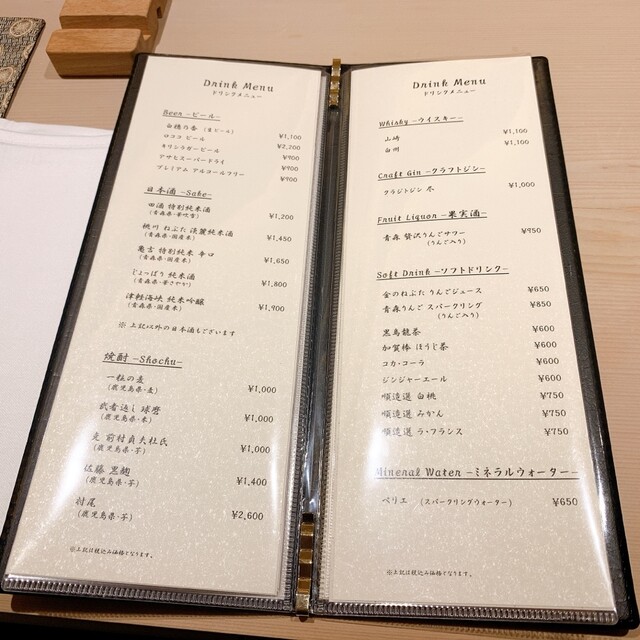 Drink Menu
ドリンクメニュー
Beer -ビール-
白穂乃香 (生ビール) ¥1,100
ロココ ビール ¥2,200
キリンラガービール ¥900
アサヒスーパードライ ¥900
プレミアム アルコールフリー ¥900
日本酒 -Sake-
田酒 特別純米酒 ¥1,200
(青森県・華吹雪)
桃川 ねぶた 淡麗純米酒 ¥1,450
(青森県・国産米)
亀吉 特別純米 辛口 ¥1,650
(青森県・国産米)
じょっぱり 純米酒 ¥1,800
(青森県・華さやか)
津軽海峡 純米吟醸 ¥1,900
(青森県・国産米)
※ 上記以外の日本酒もございます
焼酎 -Shochu-
一粒の麦 ¥1,000
(鹿児島県・麦)
武者返し 球磨 ¥1,000
(鹿児島県・米)
前村貞夫杜氏 ¥1,000
(鹿児島県・芋)
佐藤 黒麹 ¥1,400
(鹿児島県・芋)
村尾 ¥2,600
(鹿児島県・芋)
※上記は税込み価格となります。
Drink Menu
ドリンクメニュー
Whisky -ウイスキー-
山崎 ¥1,100
白州 ¥1,100
Craft Gin -クラフトジン-
クラフトジン 尽 ¥1,000
Fruit Liquor -果実酒-
青森 贅沢りんごサワー ¥950
(りんご入り)
Soft Drink -ソフトドリンク-
金のねぶた りんごジュース ¥650
青森りんご スパークリング ¥850
(りんご入り)
黒烏龍茶 ¥600
加賀棒 ほうじ茶 ¥600
コカ・コーラ ¥600
ジンジャーエール ¥600
順造選 白桃 ¥750
順造選 みかん ¥750
順造選 ラ・フランス ¥750
Mineral Water -ミネラルウォーター-
ペリエ (スパークリングウォーター) ¥650
※上記は税込み価格となります。